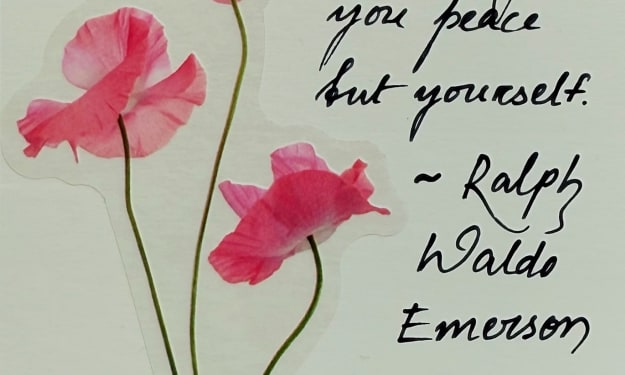 you peace
but yourself.
~ Ralph
Waldo
Emerson